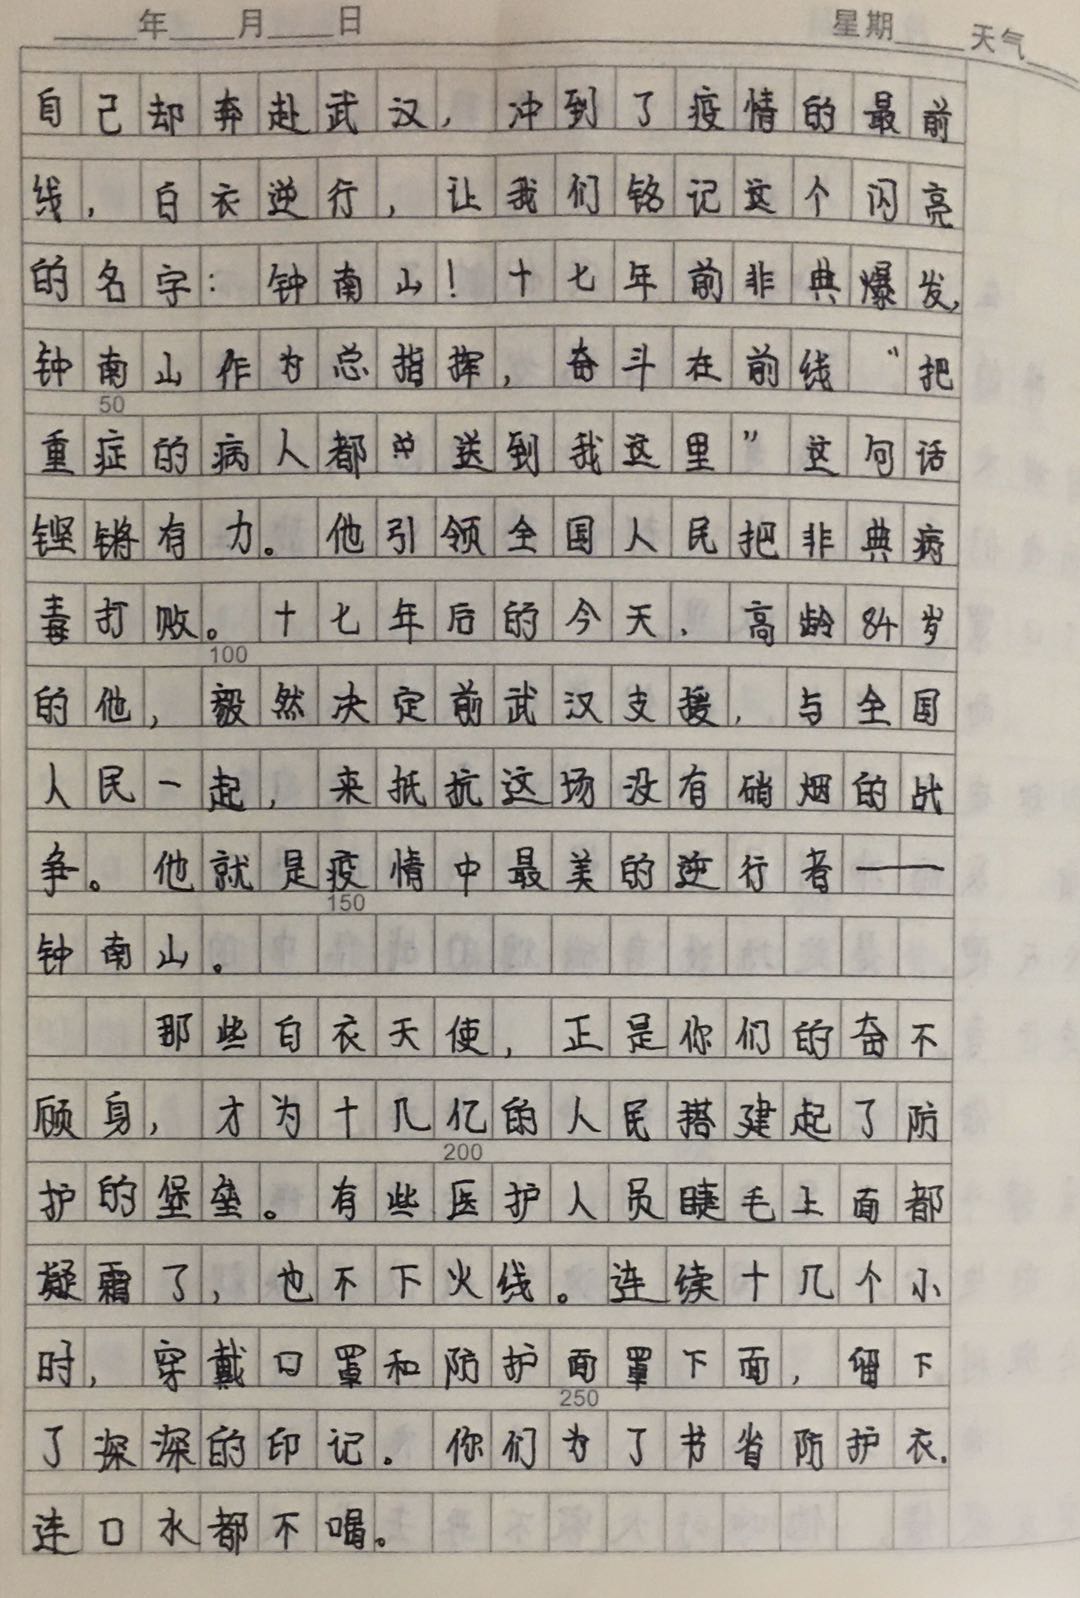 年 月 日 星期 天气
自己却奔赴武汉，冲到了疫情的最前
线，白衣逆行，让我们铭记这个闪亮
的名字：钟南山！十七年前非典爆发，
钟南山作为总指挥，奋斗在前线“把
50
重症的病人都送到我这里”这句话
铿锵有力。他引领全国人民把非典病
毒打败。十七年后的今天，高龄84岁
100
的他，毅然决定前武汉支援，与全国
人民一起，来抵抗这场没有硝烟的战
争。他就是疫情中最美的逆行者——
150
钟南山。
那些白衣天使，正是你们的奋不
顾身，才为十几亿的人民搭建起了防
200
护的堡垒。有些医护人员睫毛上面都
凝霜了，也不下火线。连续十几个小
时，穿戴口罩和防护面罩下面，留下
250
了深深的印记。你们为了节省防护衣，
连口水都不喝。